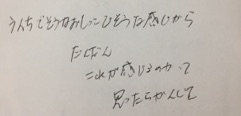 うんちでそうなおしっこひそうな感じから
たぶん
これが感じるのかって
思ったらかんして